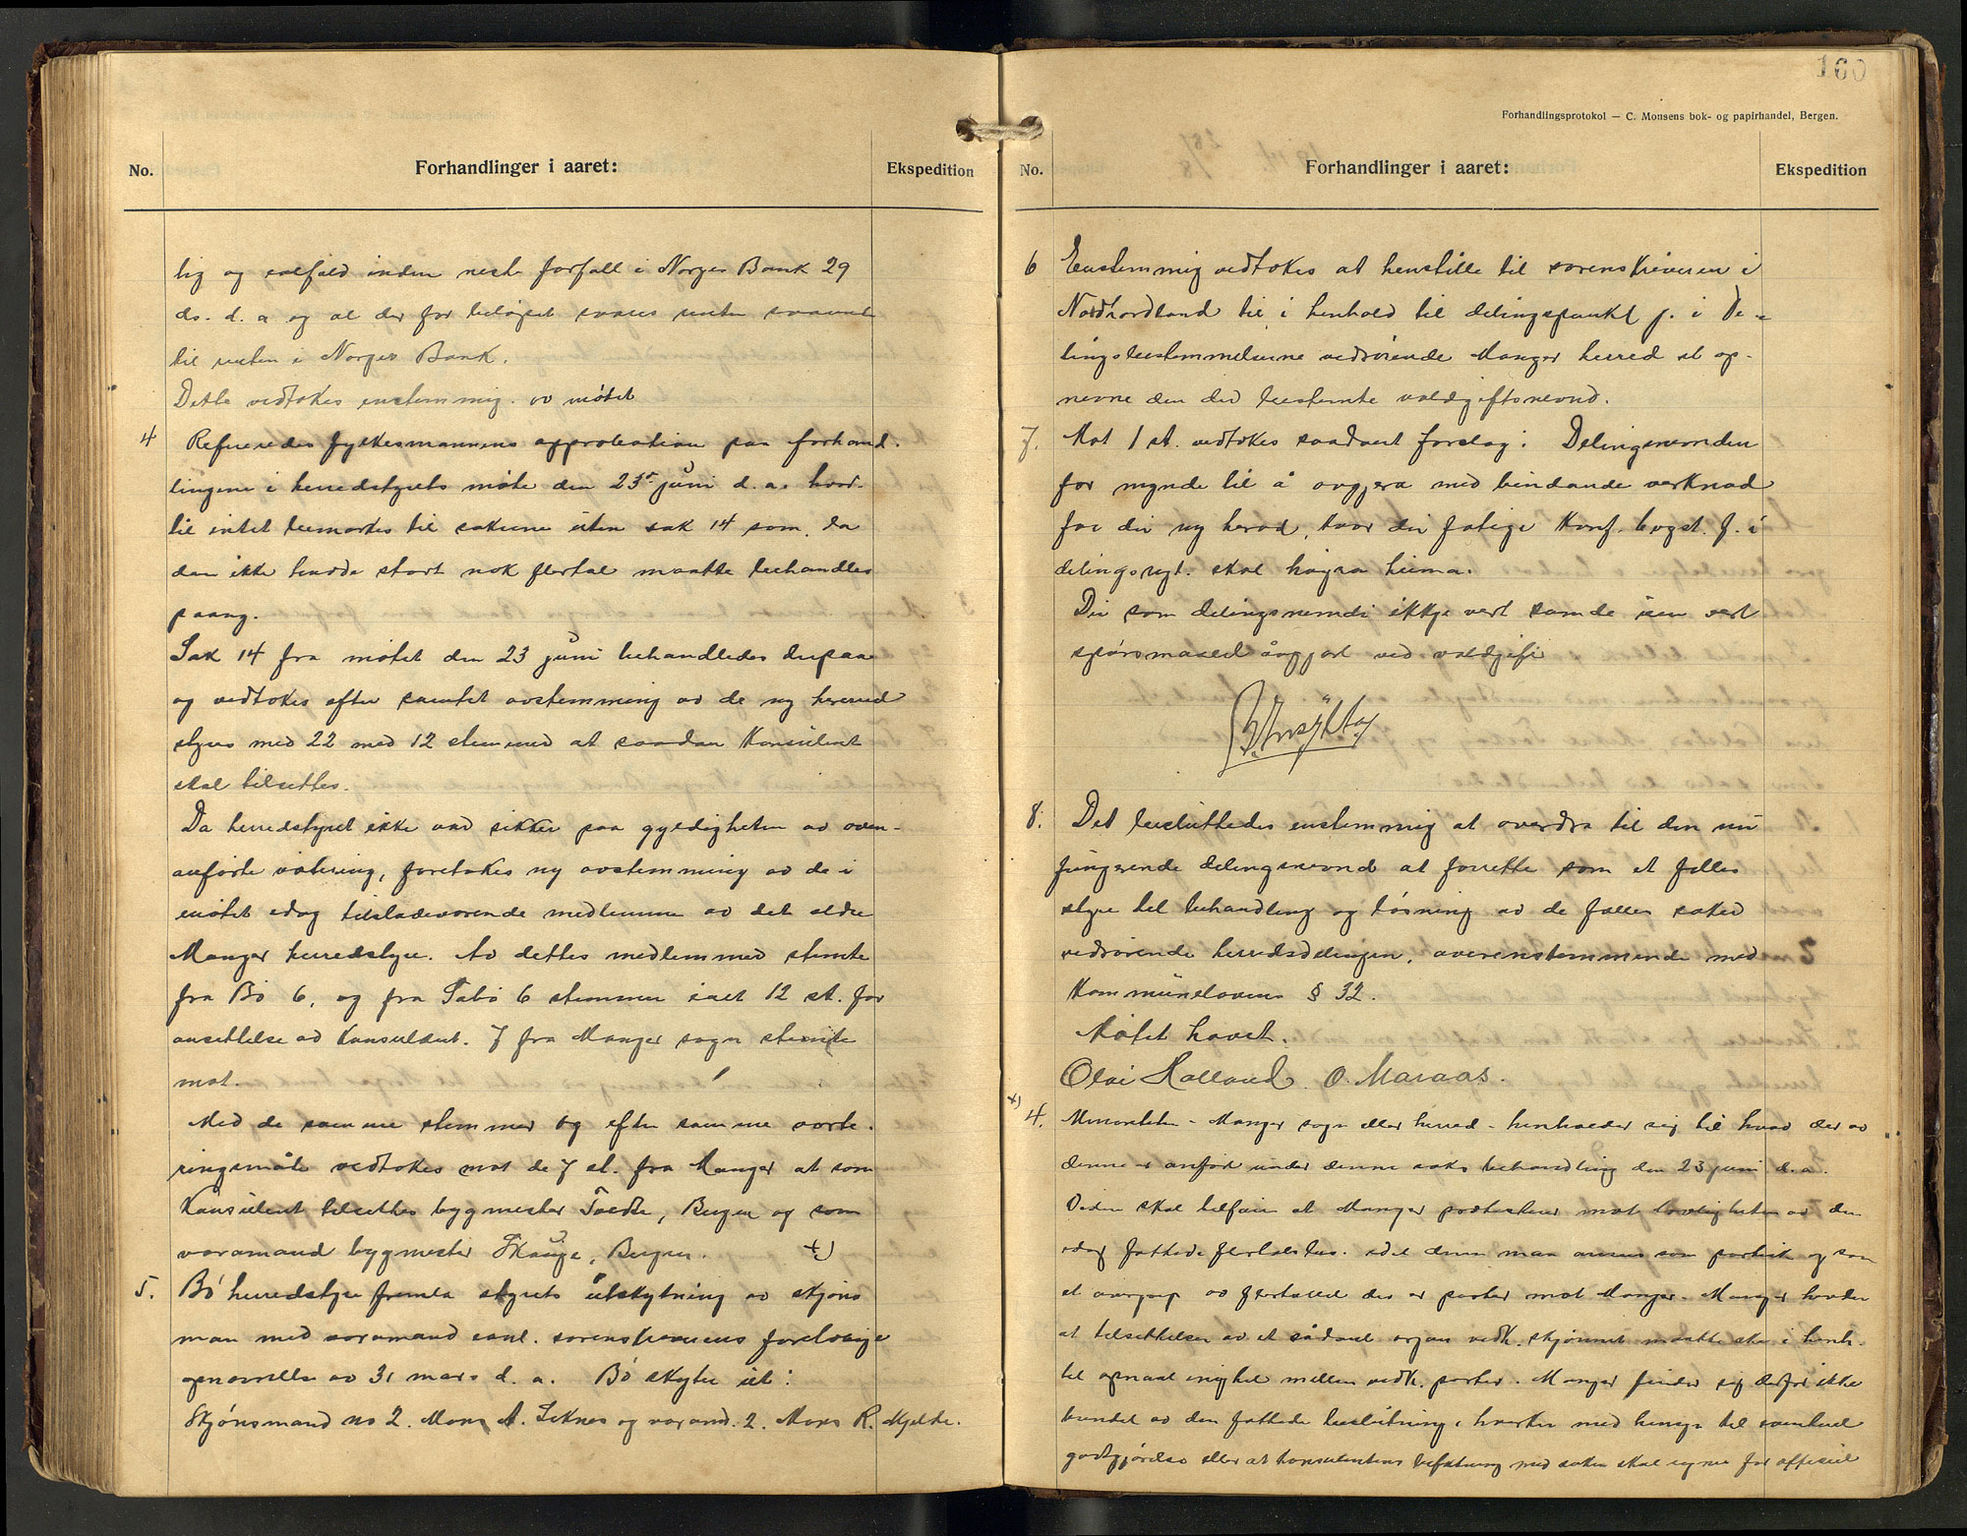 No.
Forhandlinger i aaret:
Ekspedition
lig og solfæld inden neste forfall i Norges Bank 29
ds. d. a og at der for beløpet svares renter
til renten i Norges Bank.
Dette vedtokes enstemmig. av møtet
4 Refereredes fylkesmannens approbation paa forhand-
lingene i herredstyrets møte den 23 juni d. a. hvor-
til intet bemerkes til sakerne uten sak 14 som, da
den ikke hadde stort nok flertal maatte behandles
paany.
Sak 14 fra møtet den 23 juni behandledes derpaa
og vedtokes efter samlet avstemming av de ny herred
styrer med 22 mod 12 stemmer at saadan Konsulent
skal tilsettes.
Da herredstyret ikke var sikker paa gyldigheten av oven-
anførte votering, foretokes ny avstemming av de i
møtet idag tilstedeværende medlemmer av det eldre
Manger herredstyre. Av dettes medlemmer stemte
fra Bø 6, og fra Sæbø 6 stemmer ialt 12 st. for
ansettelse av Konsulent. 7 fra Manger sogn stemte
mot.
Med de samme stemmer og efter samme vorte-
ringsmåte vedtokes mot de 7 st. fra Manger at som
Konsulent tilsettes bygmester Tvedte, Bergen og som
varamand bygmester Skauge, Bergen. x)
5. Bø herredstyre fremla styrets utskytning av skjøns
man med varamand sorenskriverens foreløbige
opnevnelse av 31 mars d. a. Bø skyter ut:
Skjønsmand no 2. Mons A. Seknes og varamd. 2. Mons R. Kjelde.
160
Forhandlingsprotokol — C. Monsens bok- og papirhandel, Bergen.
No.
Forhandlinger i aaret:
Ekspedition
6 Enstemmig vedtokes at henstille til sorenskriveren i
Nordhordland til i henhold til delingspunkt j. i De-
lingsbestemmelserne vedrørende Manger herred at op-
nevne den der bestemte voldgiftsnevnd.
7. Mot 1 st. vedtokes saadant forslag: Delingsnemnden
før mynde til å avgjera med bindande verknad
for dei ny herad, kvar dei fatige Konf. bogst. f. i
delingsregl. skal høyra heima.
Der som delingsnemdi ikkje vert samde
spørsmaalet avgjort ved voldgift
8. Det besluttedes enstemmig at overdra til den nu
fungerende delingsnevnd at forrette som et felles
styre til behandling og løsning av de felles saker
vedrørende herredsdelingen, overenstemmende med
Kommunelovens § 32.
Møtet hævet.
Olai Halland. O. Maraas.
x) 4. Minoriteten - Manger sogn eller herred - henholder sig til hvad der av
denne er anført under denne saks behandling den 23 juni d. a.
Videre skal tilføies at Manger protesterer mot lovligheten av den
idag fattede flertalsbes. idet denne maa ansees som partisk og som
et overgrep av flertallet der er parter mot Manger. Manger hevder
at tilsettelsen av et sådant organ vedk. skjønnet maatte ske i henh.
til opnaad enighet mellem vedk. parter. Manger finder sig derfor ikke
bundet av den fattede beslutning, hverken med hensyn til
godtgjørelse eller at konsulentens befatning med saken skal regnes for officiel